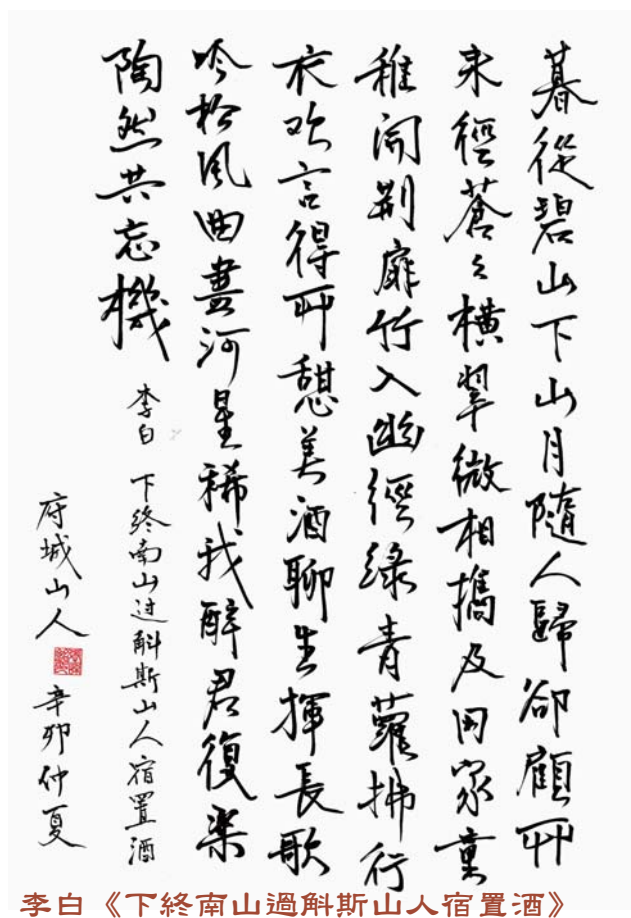 暮從碧山下山月隨人歸卻顧所
来徑蒼々橫翠微相攜及田家童
稚開荆扉竹入幽徑緑青蘿拂行
衣欢言得所憩美酒聊共揮長歌
吟松風曲盡河星稀我醉君復楽
陶然共忘機
李白 下終南山过斛斯山人宿置酒
府城山人 辛卯仲夏
李白《下終南山過斛斯山人宿置酒》